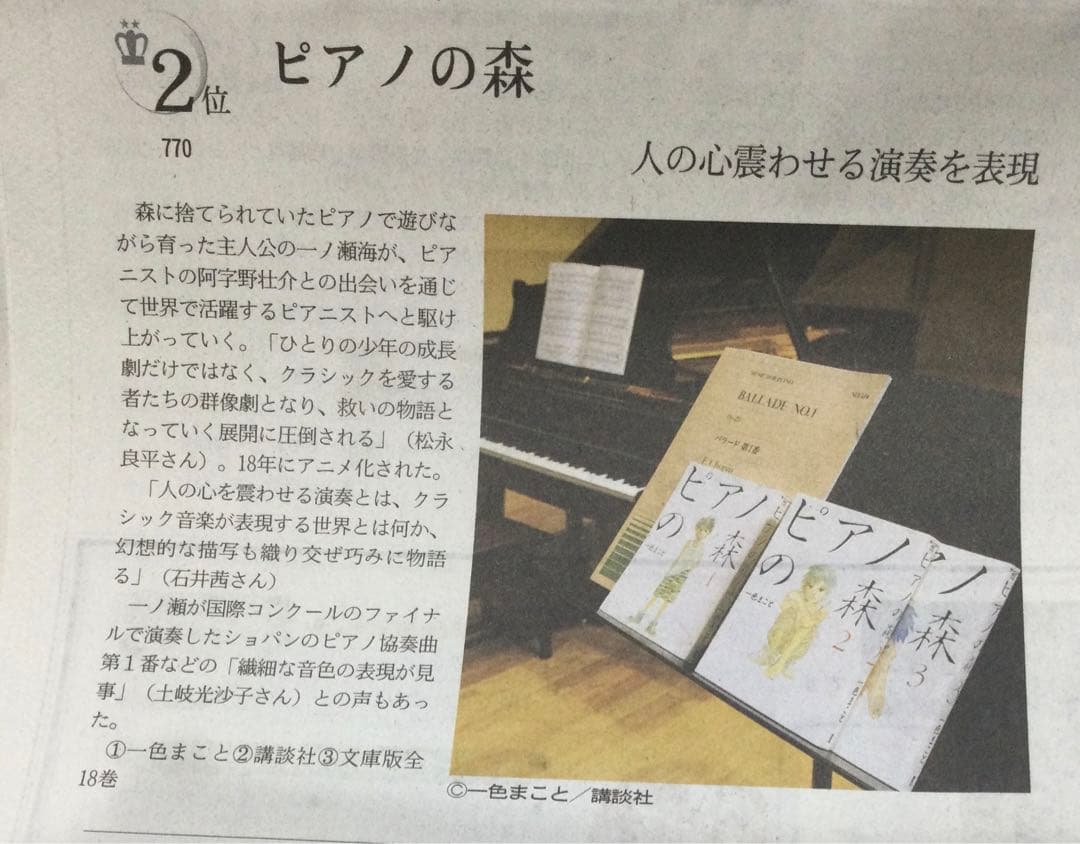 2位
ピアノの森
770
人の心震わせる演奏を表現
森に捨てられていたピアノで遊びな
がら育った主人公の一ノ瀬海が、ピア
ニストの阿字野壮介との出会いを通じ
て世界で活躍するピアニストへと駆け
上がっていく。「ひとりの少年の成長
劇だけではなく、クラシックを愛する
者たちの群像劇となり、救いの物語と
なっていく展開に圧倒される」（松永
良平さん）。18年にアニメ化された。
「人の心を震わせる演奏とは、クラ
シック音楽が表現する世界とは何か、
幻想的な描写も織り交ぜ巧みに物語
る」（石井茜さん）
一ノ瀬が国際コンクールのファイナ
ルで演奏したショパンのピアノ協奏曲
第１番などの「繊細な音色の表現が見
事」（土岐光沙子さん）との声もあっ
た。
①一色まこと②講談社③文庫版全
18巻
BALLADE NO.1
バラード 第1番
ピアノの森 1
一色まこと
ピアノの森 2
一色まこと
ピアノの森 3
©一色まこと／講談社